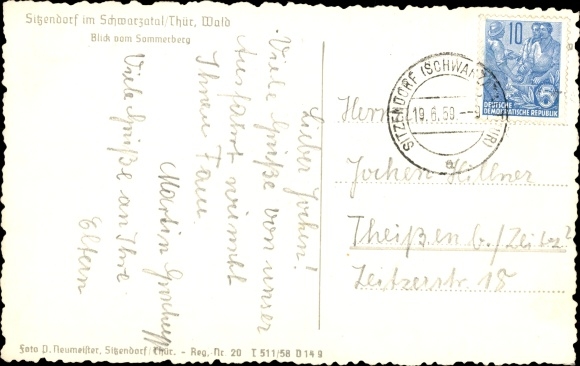 Sitzendorf im Schwarzatal/Thür. Wald
Blick vom Sommerberg
Lieber Jochen!
Viele Grüße von unser
Ausfahrt wünscht
Ihnen Fam.
Martin
Viele Grüße an Ihre
Eltern
Herrn
Jochen Hillner
Theißen b./Zeitz
Zeitzerstr. 18
10
DEUTSCHE
DEMOKRATISCHE REPUBLIK
SITZENDORF (SCHWARZ
Foto D. Neumeister, Sitzendorf/Thür. - Reg. Nr. 20 T 511/58 D 149